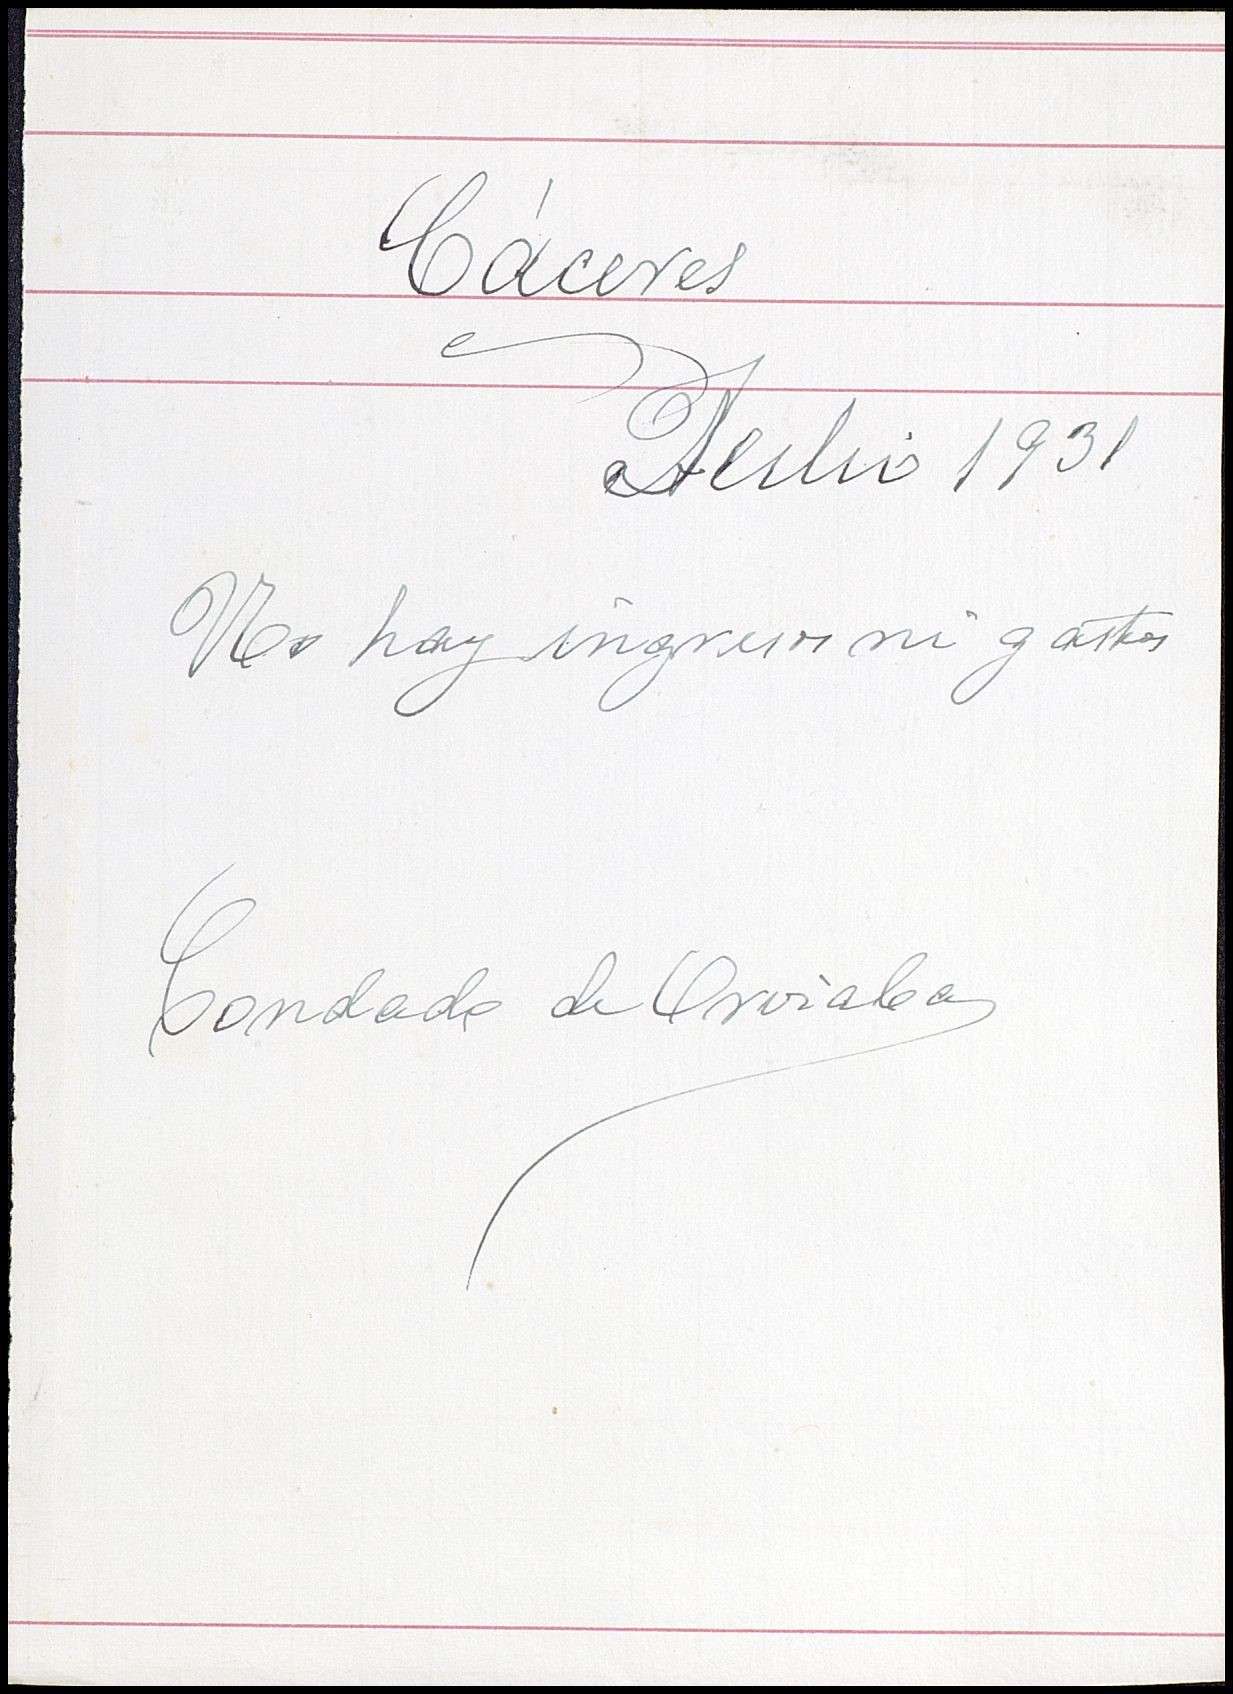 Cáceres
Julio 1931
No hay ingresos ni gastos
Condado de